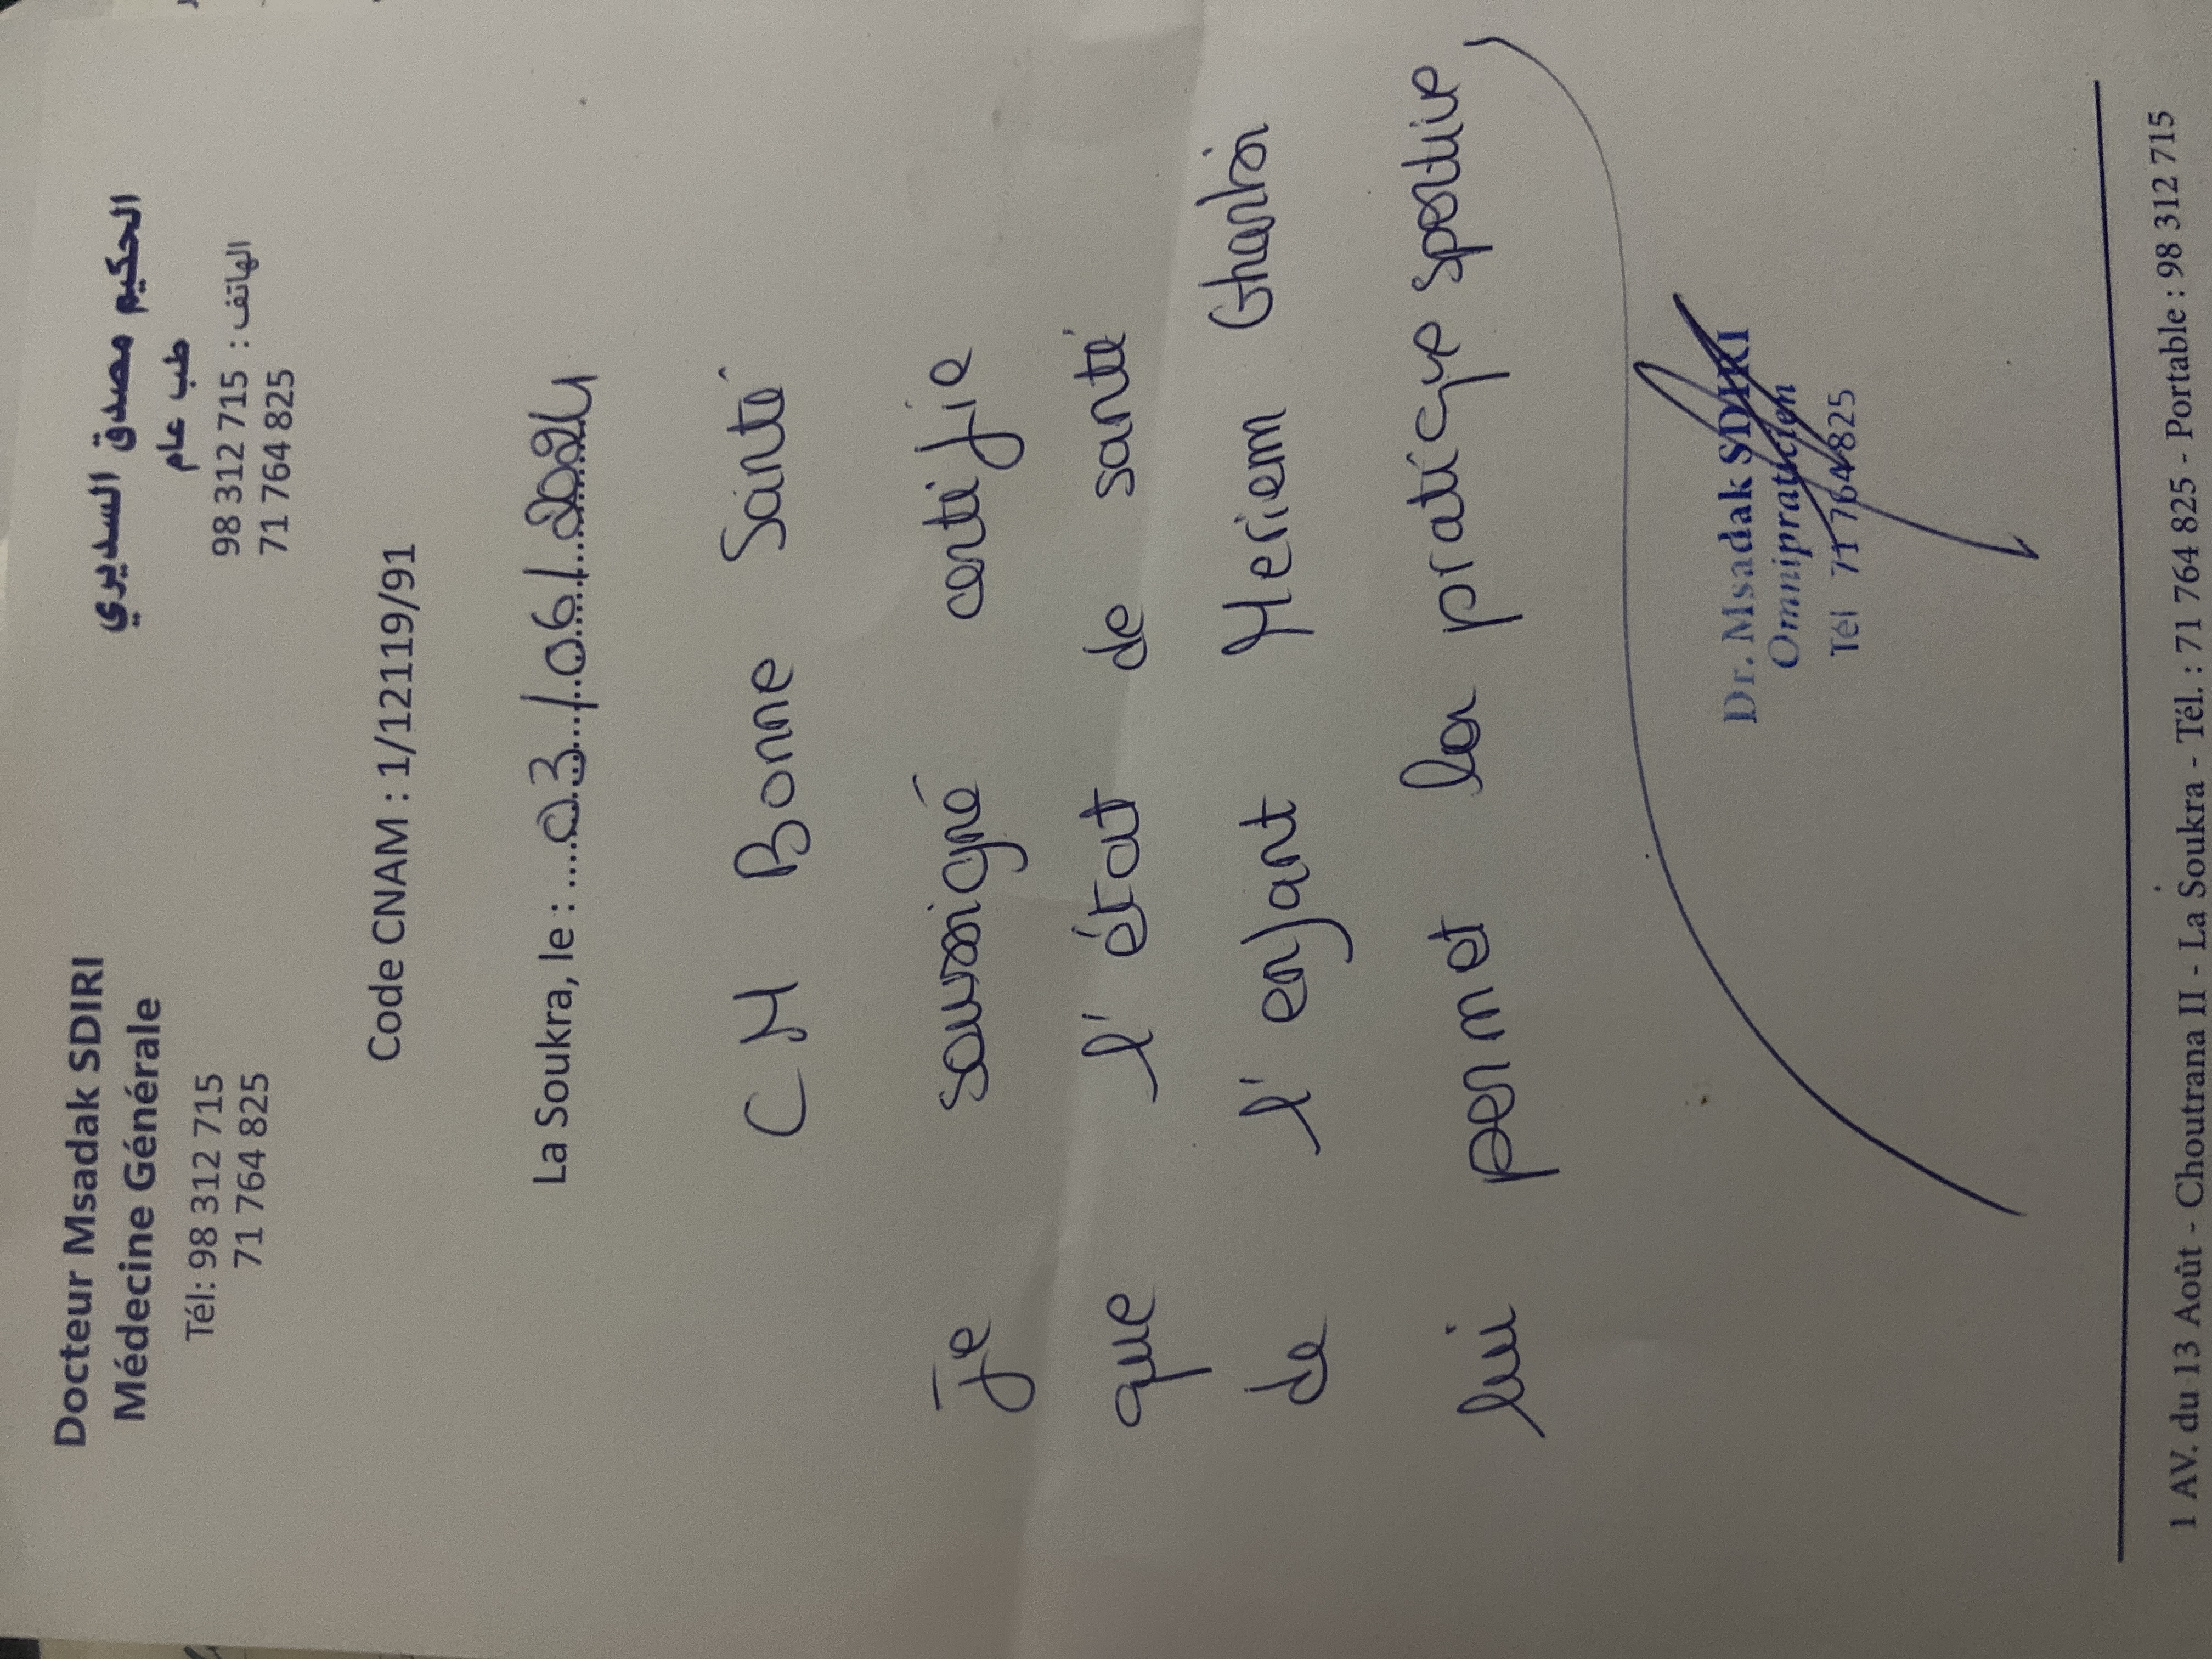 Docteur Msadak SDIRI
Médecine Générale
Tél: 98 312 715
71 764 825
الحكيم مصدق السديري
طب عام
الهاتف : 98 312 715
71 764 825
Code CNAM : 1/12119/91
La Soukra, le : 03/06/2024
CM Bonne Santé
Je soussigné certifie
que l'état de santé
de l'enfant Meriem Gharbi
lui permet la pratique sportive
Dr. Msadak SDIRI
Omnipraticien
Tél 71 764 825
1 AV. du 13 Août - Choutrana II - La Soukra - Tél. : 71 764 825 - Portable : 98 312 715